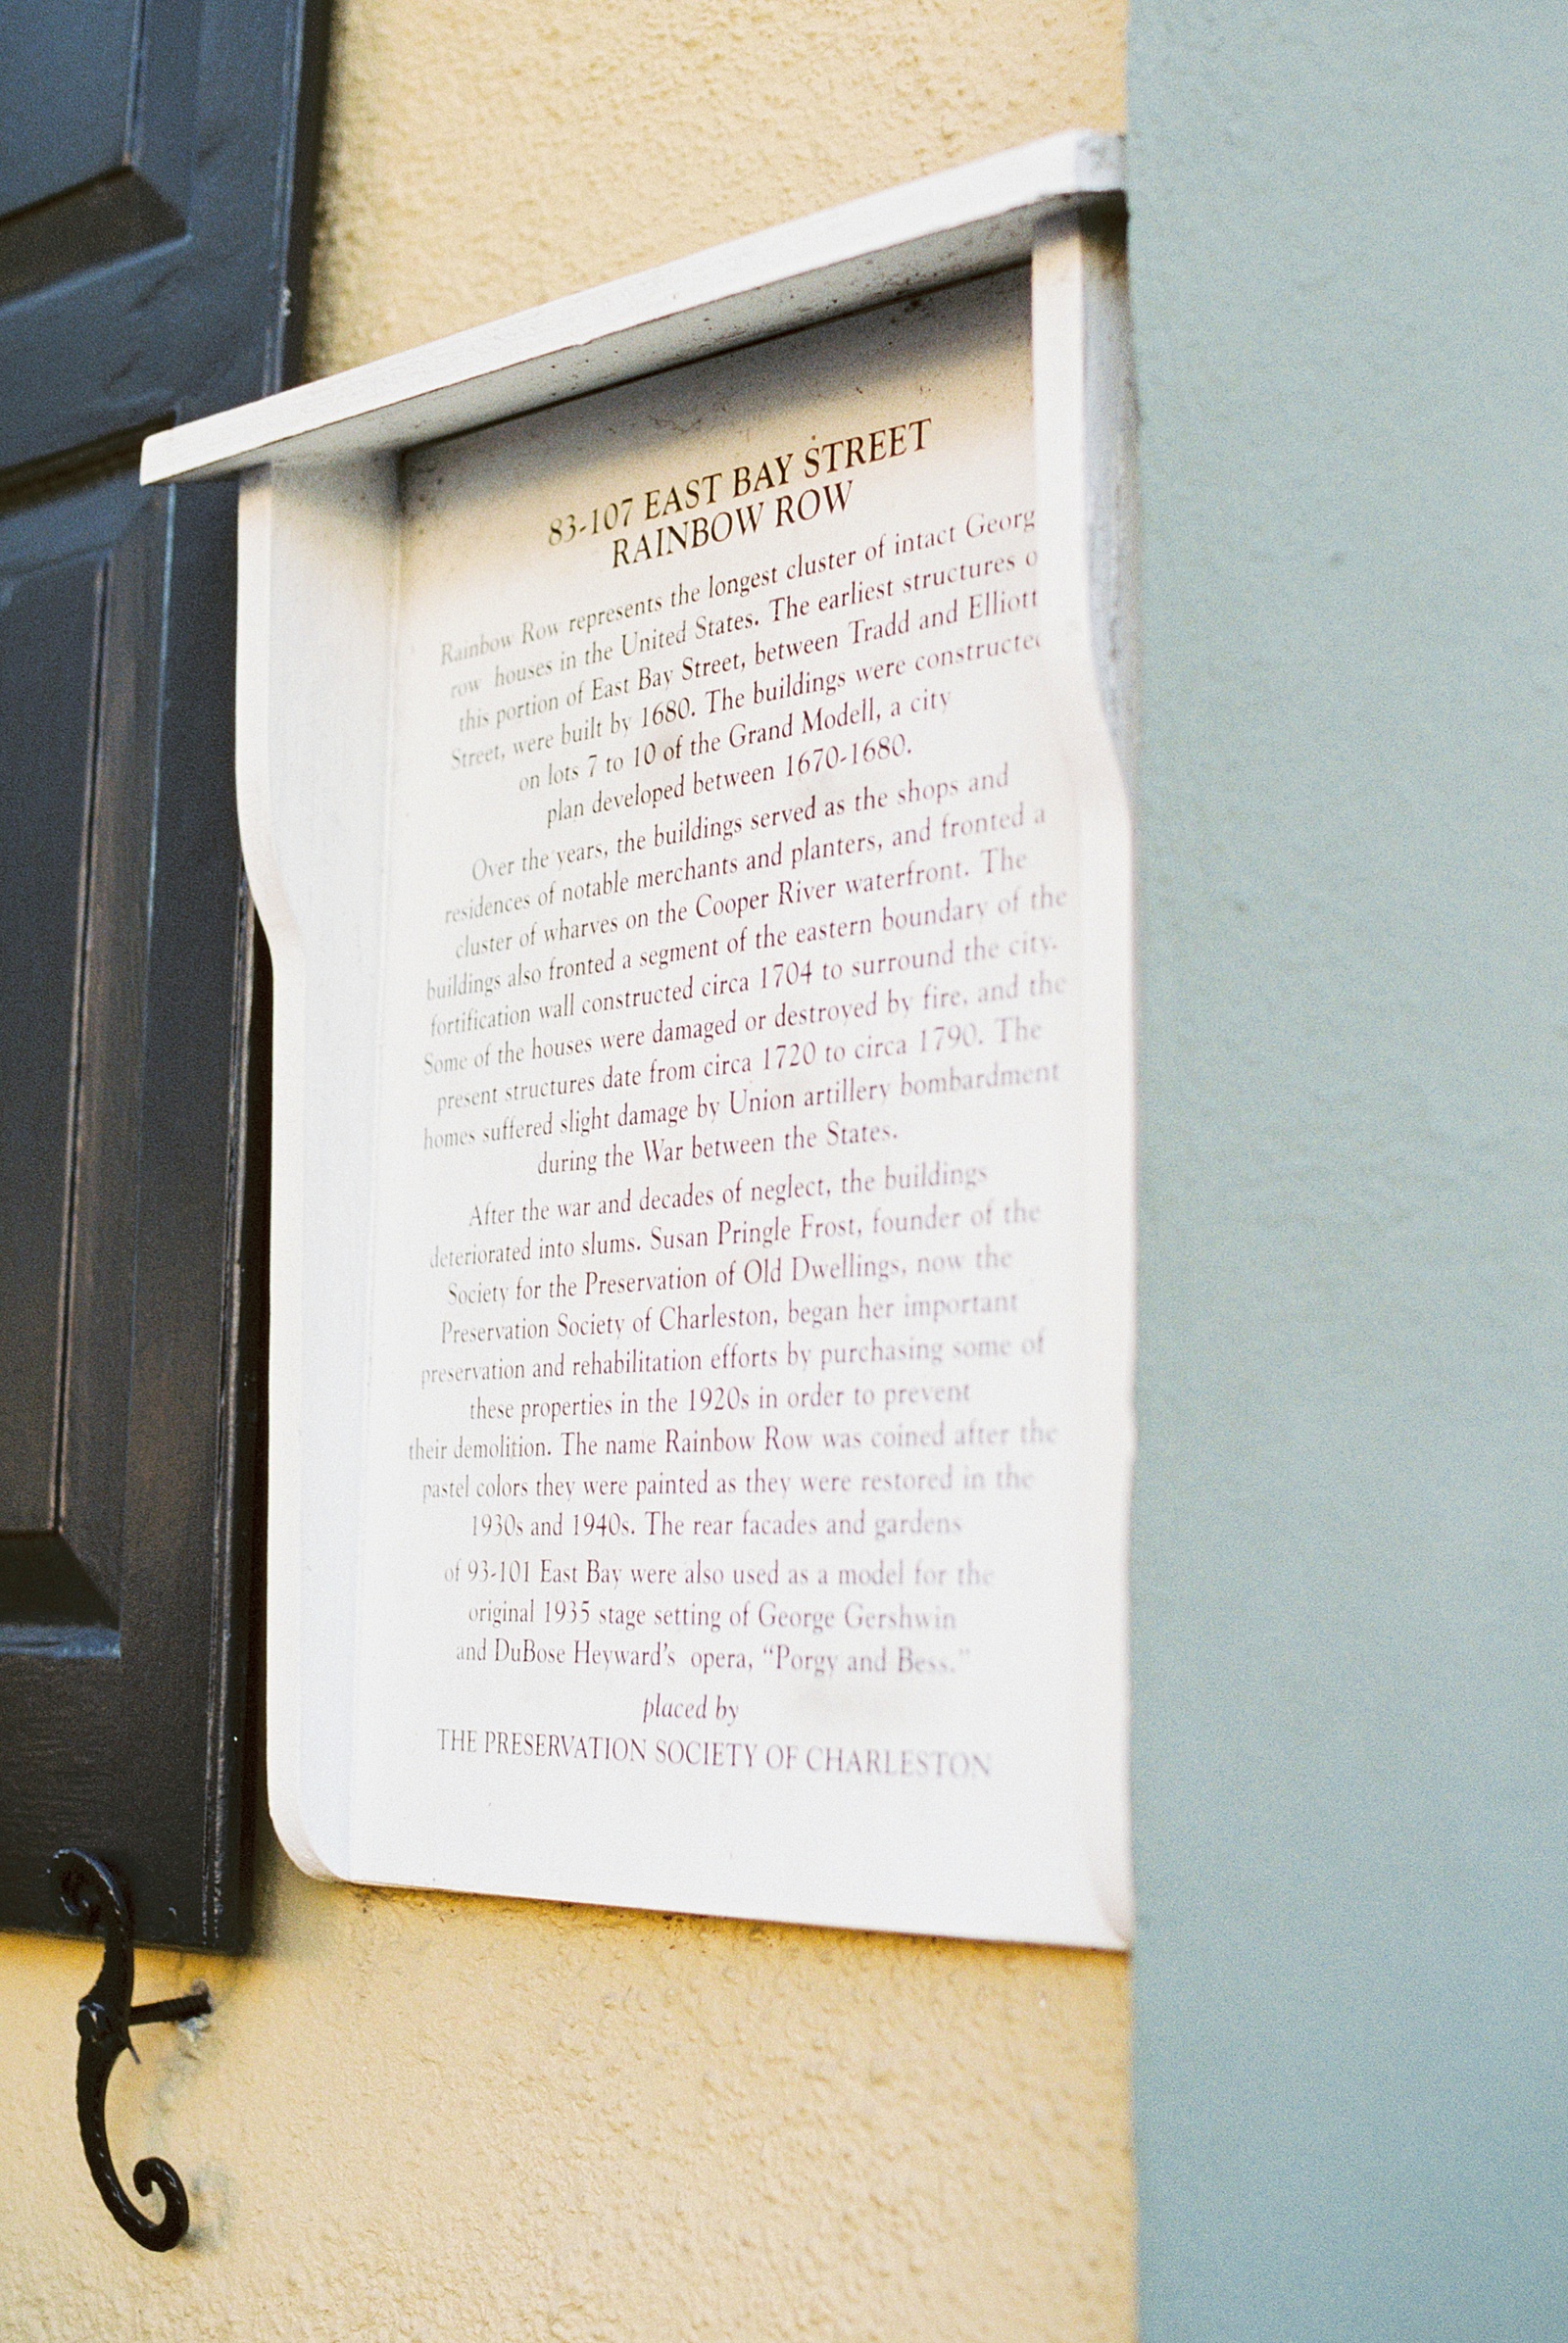 83-107 EAST BAY STREET
RAINBOW ROW
Rainbow Row represents the longest cluster of intact Georg
row houses in the United States. The earliest structures o
this portion of East Bay Street, between Tradd and Elliott
Street, were built by 1680. The buildings were constructed
on lots 7 to 10 of the Grand Modell, a city
plan developed between 1670-1680.
Over the years, the buildings served as the shops and
residences of notable merchants and planters, and fronted a
cluster of wharves on the Cooper River waterfront. The
buildings also fronted a segment of the eastern boundary of the
fortification wall constructed circa 1704 to surround the city.
Some of the houses were damaged or destroyed by fire, and the
present structures date from circa 1720 to circa 1790. The
homes suffered slight damage by Union artillery bombardment
during the War between the States.
After the war and decades of neglect, the buildings
deteriorated into slums. Susan Pringle Frost, founder of the
Society for the Preservation of Old Dwellings, now the
Preservation Society of Charleston, began her important
preservation and rehabilitation efforts by purchasing some of
these properties in the 1920s in order to prevent
their demolition. The name Rainbow Row was coined after the
pastel colors they were painted as they were restored in the
1930s and 1940s. The rear facades and gardens
of 93-101 East Bay were also used as a model for the
original 1935 stage setting of George Gershwin
and DuBose Heyward's opera, "Porgy and Bess."
placed by
THE PRESERVATION SOCIETY OF CHARLESTON